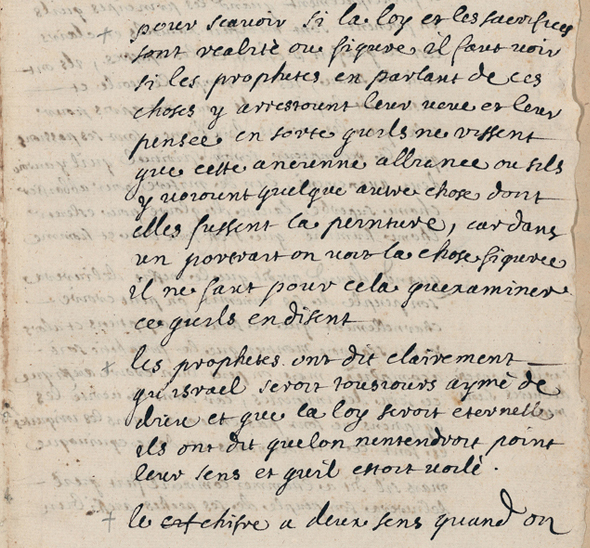 pour scavoir si la loy et les sacrifices
sont realité ou figure il faut voir
si les prophetes en parlant de ces
choses y arrestoient leur veue et leur
pensée en sorte quils ne vissent
que cette ancienne alliance ou sils
y voioient quelque autre chose dont
elles fussent la peinture, car dans
un portrait on voit la chose figurée
il ne faut pour cela quexaminer
ce quils en disent
+ les prophetes ont dit clairement
qu israel seroit tousiours aymé de
dieu et que la loy seroit eternelle
ils ont dit quelon nentendroit point
leur sens et quil estoit voilé.
+ le chifre a deux sens quand on